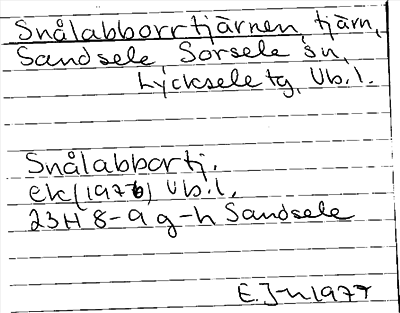 Snålabborrtjärnen, tjärn,
Sandsele, Sorsele sn,
Lycksele tg, Vb.l.
Snålabbortj.
ek (1976) Vb.l.
23H 8-9 g-h Sandsele
E.J-n 1977